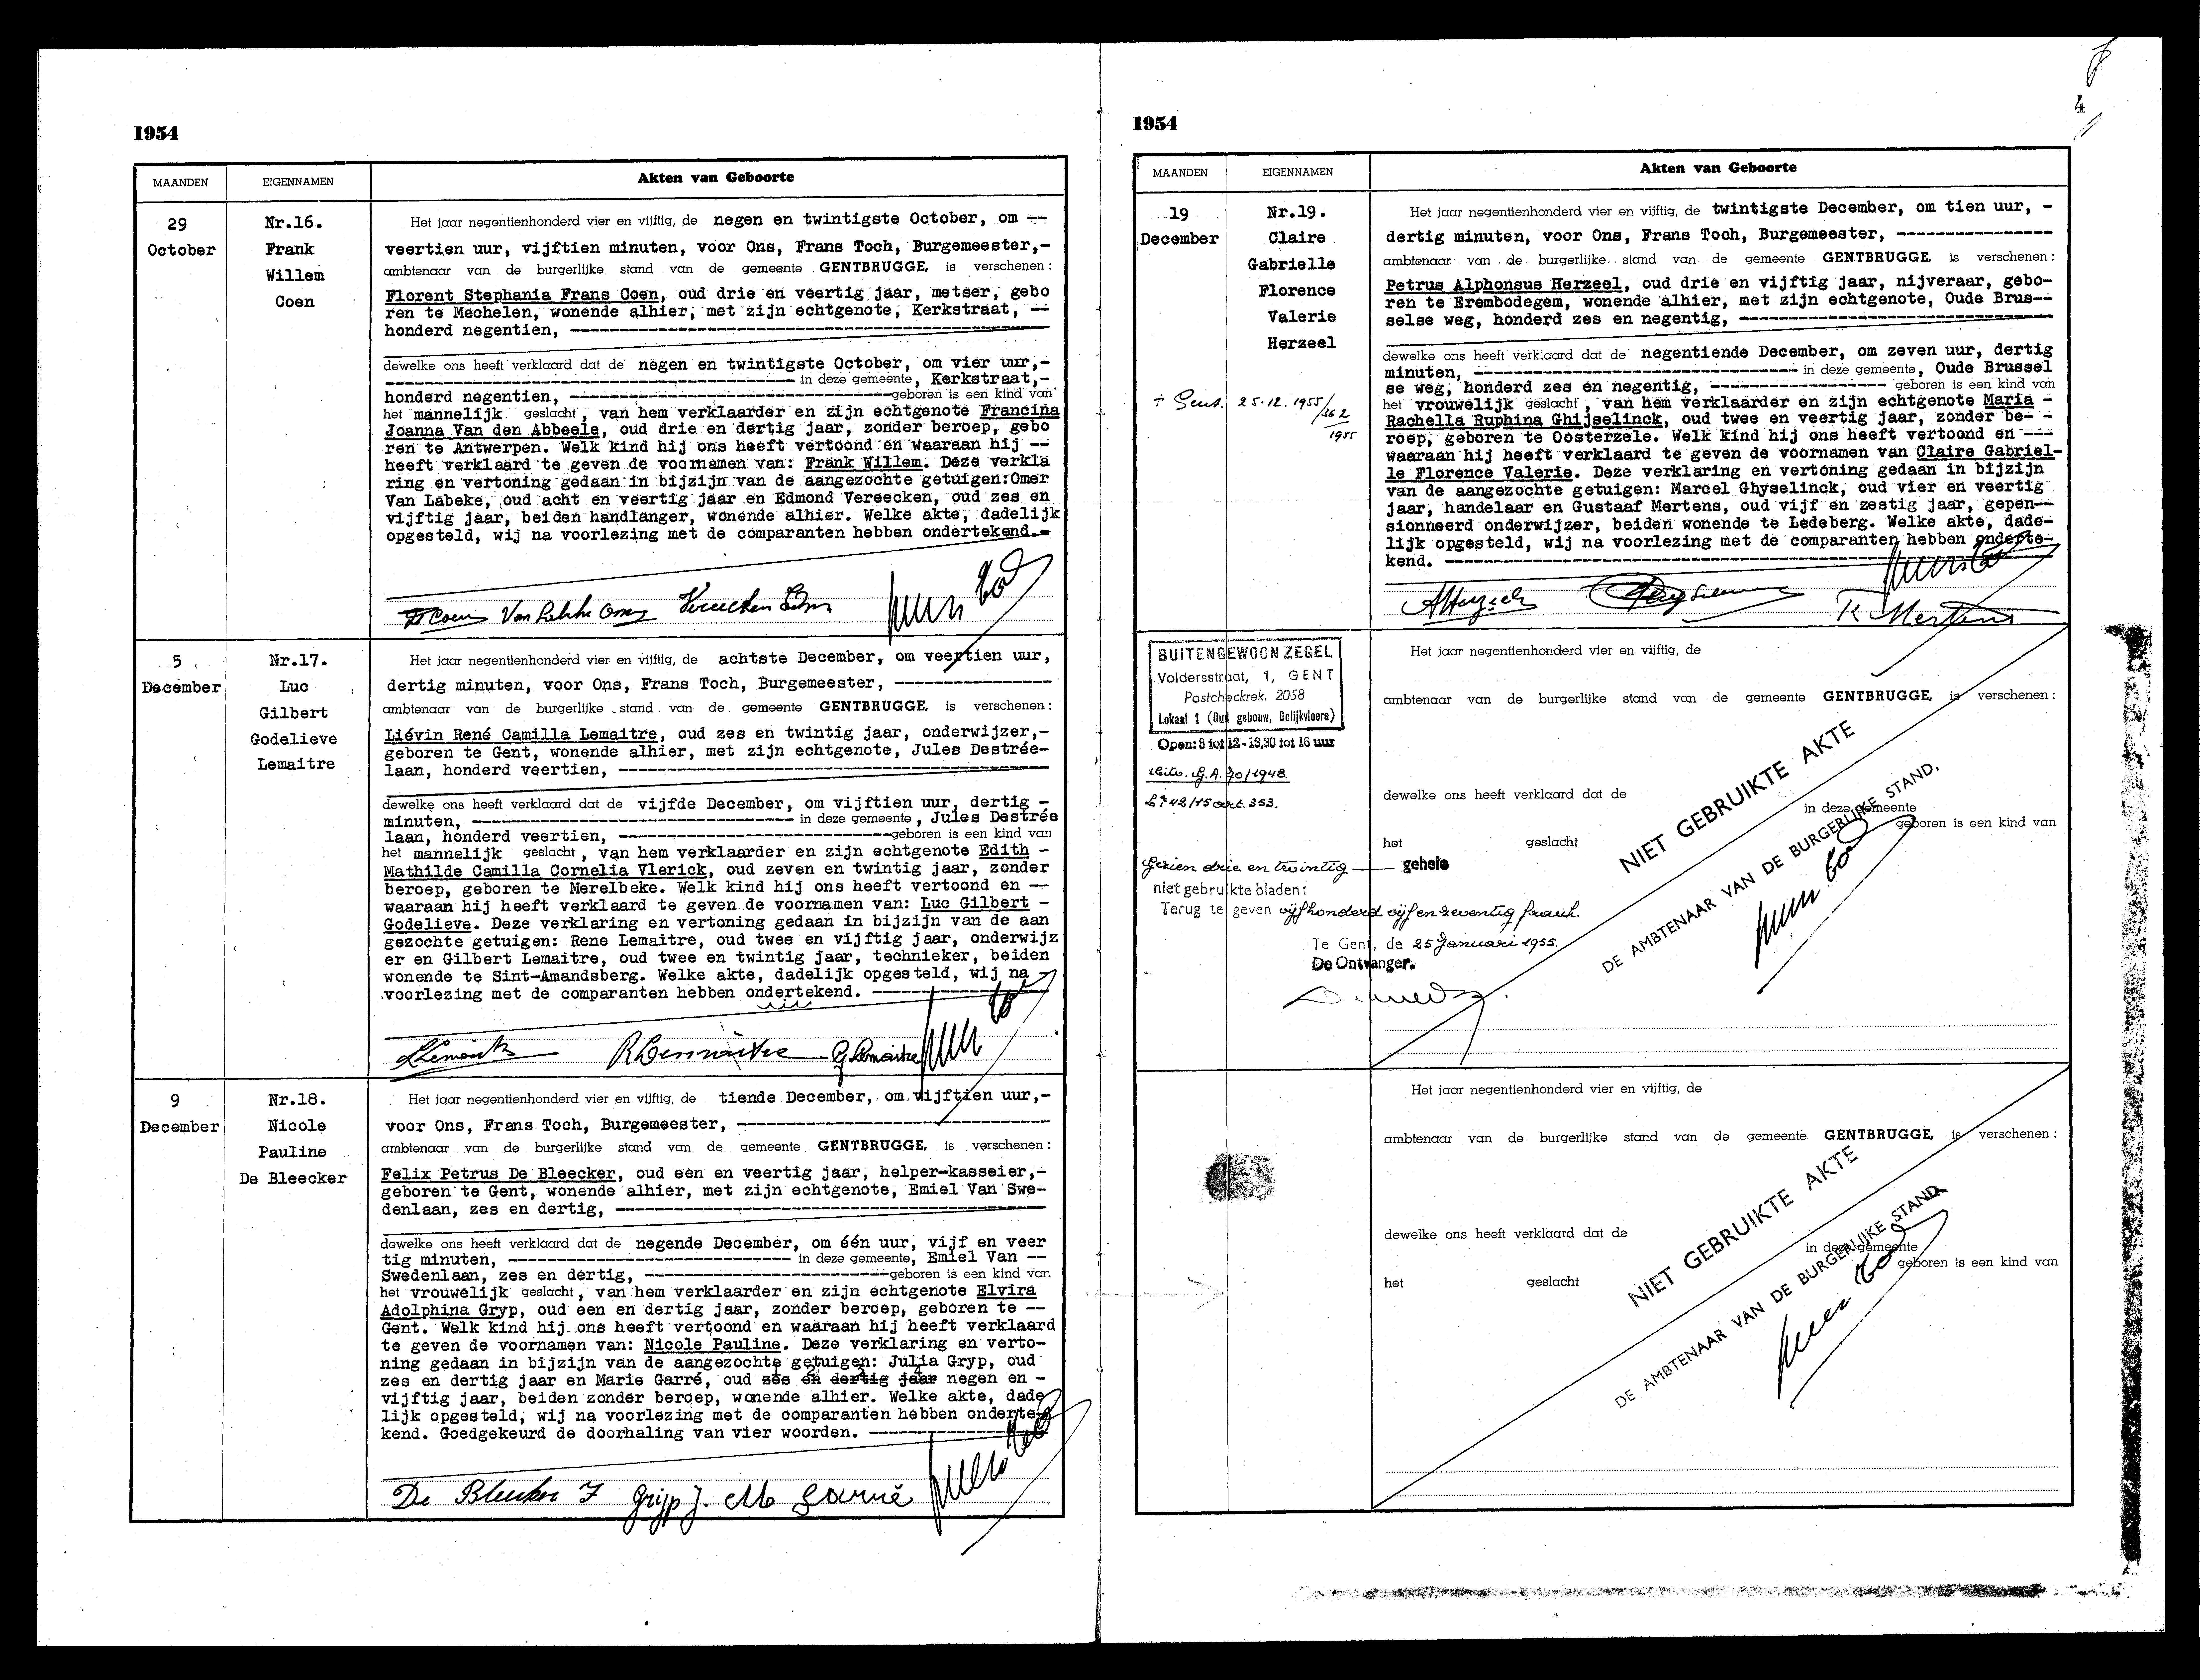 1954
MAANDEN EIGENNAMEN Akten van Geboorte
29
October
Nr.16.
Frank
Willem
Coen
Het jaar negentienhonderd vier en vijftig, de negen en twintigste October, om --
veertien uur, vijftien minuten, voor Ons, Frans Toch, Burgemeester,-
ambtenaar van de burgerlijke stand van de gemeente GENTBRUGGE, is verschenen:
Florent Stephania Frans Coen, oud drie en veertig jaar, metser, gebo
ren te Mechelen, wonende alhier, met zijn echtgenote, Kerkstraat, --
honderd negentien, ---
dewelke ons heeft verklaard dat de negen en twintigste October, om vier uur,-
--- in deze gemeente, Kerkstraat,-
honderd negentien, --- geboren is een kind van
het mannelijk geslacht, van hem verklaarder en zijn echtgenote Francina
Joanna Van den Abbeele, oud drie en dertig jaar, zonder beroep, gebo
ren te Antwerpen. Welk kind hij ons heeft vertoond en waaraan hij --
heeft verklaard te geven de voornamen van: Frank Willem. Deze verkla
ring en vertoning gedaan in bijzijn van de aangezochte getuigen:Omer
Van Labeke, oud acht en veertig jaar en Edmond Vereecken, oud zes en
vijftig jaar, beiden handlanger, wonende alhier. Welke akte, dadelijk
opgesteld, wij na voorlezing met de comparanten hebben ondertekend.-
5
December
Nr.17.
Luc
Gilbert
Godelieve
Lemaitre
Het jaar negentienhonderd vier en vijftig, de achtste December, om veertien uur,
dertig minuten, voor Ons, Frans Toch, Burgemeester, ---
ambtenaar van de burgerlijke stand van de gemeente GENTBRUGGE, is verschenen:
Liévin René Camilla Lemaitre, oud zes en twintig jaar, onderwijzer,-
geboren te Gent, wonende alhier, met zijn echtgenote, Jules Destrée-
laan, honderd veertien, ---
dewelke ons heeft verklaard dat de vijfde December, om vijftien uur, dertig -
minuten, --- in deze gemeente, Jules Destrée
laan, honderd veertien, --- geboren is een kind van
het mannelijk geslacht, van hem verklaarder en zijn echtgenote Edith -
Mathilde Camilla Cornelia Vlerick, oud zeven en twintig jaar, zonder
beroep, geboren te Merelbeke. Welk kind hij ons heeft vertoond en --
waaraan hij heeft verklaard te geven de voornamen van: Luc Gilbert -
Godelieve. Deze verklaring en vertoning gedaan in bijzijn van de aan
gezochte getuigen: Rene Lemaitre, oud twee en vijftig jaar, onderwijz
er en Gilbert Lemaitre, oud twee en twintig jaar, technieker, beiden
wonende te Sint-Amandsberg. Welke akte, dadelijk opgesteld, wij na -
voorlezing met de comparanten hebben ondertekend. ---
R Lemaitre G Lemaitre
9
December
Nr.18.
Nicole
Pauline
De Bleecker
Het jaar negentienhonderd vier en vijftig, de tiende December, om vijftien uur,-
voor Ons, Frans Toch, Burgemeester, ---
ambtenaar van de burgerlijke stand van de gemeente GENTBRUGGE, is verschenen:
Felix Petrus De Bleecker, oud een en veertig jaar, helper-kasseier,-
geboren te Gent, wonende alhier, met zijn echtgenote, Emiel Van Swe-
denlaan, zes en dertig, ---
dewelke ons heeft verklaard dat de negende December, om één uur, vijf en veer
tig minuten, --- in deze gemeente, Emiel Van --
Swedenlaan, zes en dertig, --- geboren is een kind van
het vrouwelijk geslacht, van hem verklaarder en zijn echtgenote Elvira
Adolphina Gryp, oud een en dertig jaar, zonder beroep, geboren te --
Gent. Welk kind hij ons heeft vertoond en waaraan hij heeft verklaard
te geven de voornamen van: Nicole Pauline. Deze verklaring en verto-
ning gedaan in bijzijn van de aangezochte getuigen: Julia Gryp, oud
zes en dertig jaar en Marie Garré, oud zes en dertig jaar negen en -
vijftig jaar, beiden zonder beroep, wonende alhier. Welke akte, dade
lijk opgesteld, wij na voorlezing met de comparanten hebben onderte-
kend. Goedgekeurd de doorhaling van vier woorden. ---
De Bleecker F Grijp J. M Garré
4
1954
MAANDEN EIGENNAMEN Akten van Geboorte
19
December
Nr.19.
Claire
Gabrielle
Florence
Valerie
Herzeel
÷ Gent. 25.12.1955/362
1955
Het jaar negentienhonderd vier en vijftig, de twintigste December, om tien uur, -
dertig minuten, voor Ons, Frans Toch, Burgemeester, ---
ambtenaar van de burgerlijke stand van de gemeente GENTBRUGGE, is verschenen:
Petrus Alphonsus Herzeel, oud drie en vijftig jaar, nijveraar, gebo-
ren te Erembodegem, wonende alhier, met zijn echtgenote, Oude Brus--
selse weg, honderd zes en negentig, ---
dewelke ons heeft verklaard dat de negentiende December, om zeven uur, dertig
minuten, --- in deze gemeente, Oude Brussel
se weg, honderd zes en negentig, --- geboren is een kind van
het vrouwelijk geslacht, van hem verklaarder en zijn echtgenote Maria -
Rachella Ruphina Ghijselinck, oud twee en veertig jaar, zonder be- -
roep, geboren te Oosterzele. Welk kind hij ons heeft vertoond en ---
waaraan hij heeft verklaard te geven de voornamen van Claire Gabriel-
le Florence Valerie. Deze verklaring en vertoning gedaan in bijzijn
van de aangezochte getuigen: Marcel Ghyselinck, oud vier en veertig
jaar, handelaar en Gustaaf Mertens, oud vijf en zestig jaar, gepen--
sionneerd onderwijzer, beiden wonende te Ledeberg. Welke akte, dade-
lijk opgesteld, wij na voorlezing met de comparanten hebben onderte-
kend. ---
Mertens
BUITENGEWOON ZEGEL
Voldersstraat, 1, GENT
Postcheckrek. 2058
Lokaal 1 (Oud gebouw, Gelijkvloers)
Open: 8 tot 12 - 13,30 tot 16 uur
G.A. 70/1948.
42/15 art. 353.
Gezien drie en twintig gehele
niet gebruikte bladen:
Terug te geven vijfhonderd vijf en zeventig frank.
Te Gent, de 25 Januari 1955.
De Ontvanger.
Het jaar negentienhonderd vier en vijftig, de
ambtenaar van de burgerlijke stand van de gemeente GENTBRUGGE, is verschenen:
dewelke ons heeft verklaard dat de
in deze gemeente
geboren is een kind van
het geslacht
NIET GEBRUIKTE AKTE
DE AMBTENAAR VAN DE BURGERLIJKE STAND,
Het jaar negentienhonderd vier en vijftig, de
ambtenaar van de burgerlijke stand van de gemeente GENTBRUGGE, is verschenen:
dewelke ons heeft verklaard dat de
in deze gemeente
geboren is een kind van
het geslacht
NIET GEBRUIKTE AKTE
DE AMBTENAAR VAN DE BURGERLIJKE STAND,